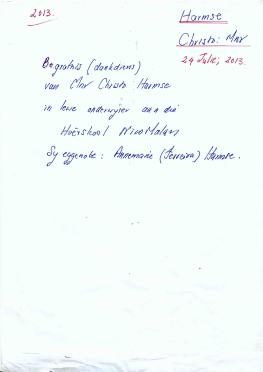 2013.
Harmse
Christo: Mnr
24 Julie, 2013.
Begrafnis (dankdiens)
van Mnr Christo Harmse
in lewe onderwyser aan die
Hoërskool Nico Malan
Sy eggenote: Annemarie (Ferreira) Harmse.